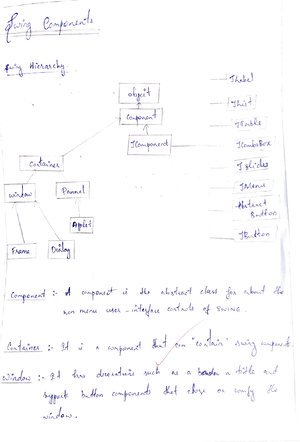 Swing Components
Swing Hierarchy
object
Component
JComponent
Container
Window
Pannel
Applet
Frame
Dialog
JLabel
JList
JTable
JComboBox
JSlider
JMenu
Abstract
Button
JButton
Component :- A component is the abstract class for about the
non menu user-interface controls of swing.
Container :- It is a component that can "contain" swing component.
Window :- It has decorations such as a border a title and
support button components that close or the
window.